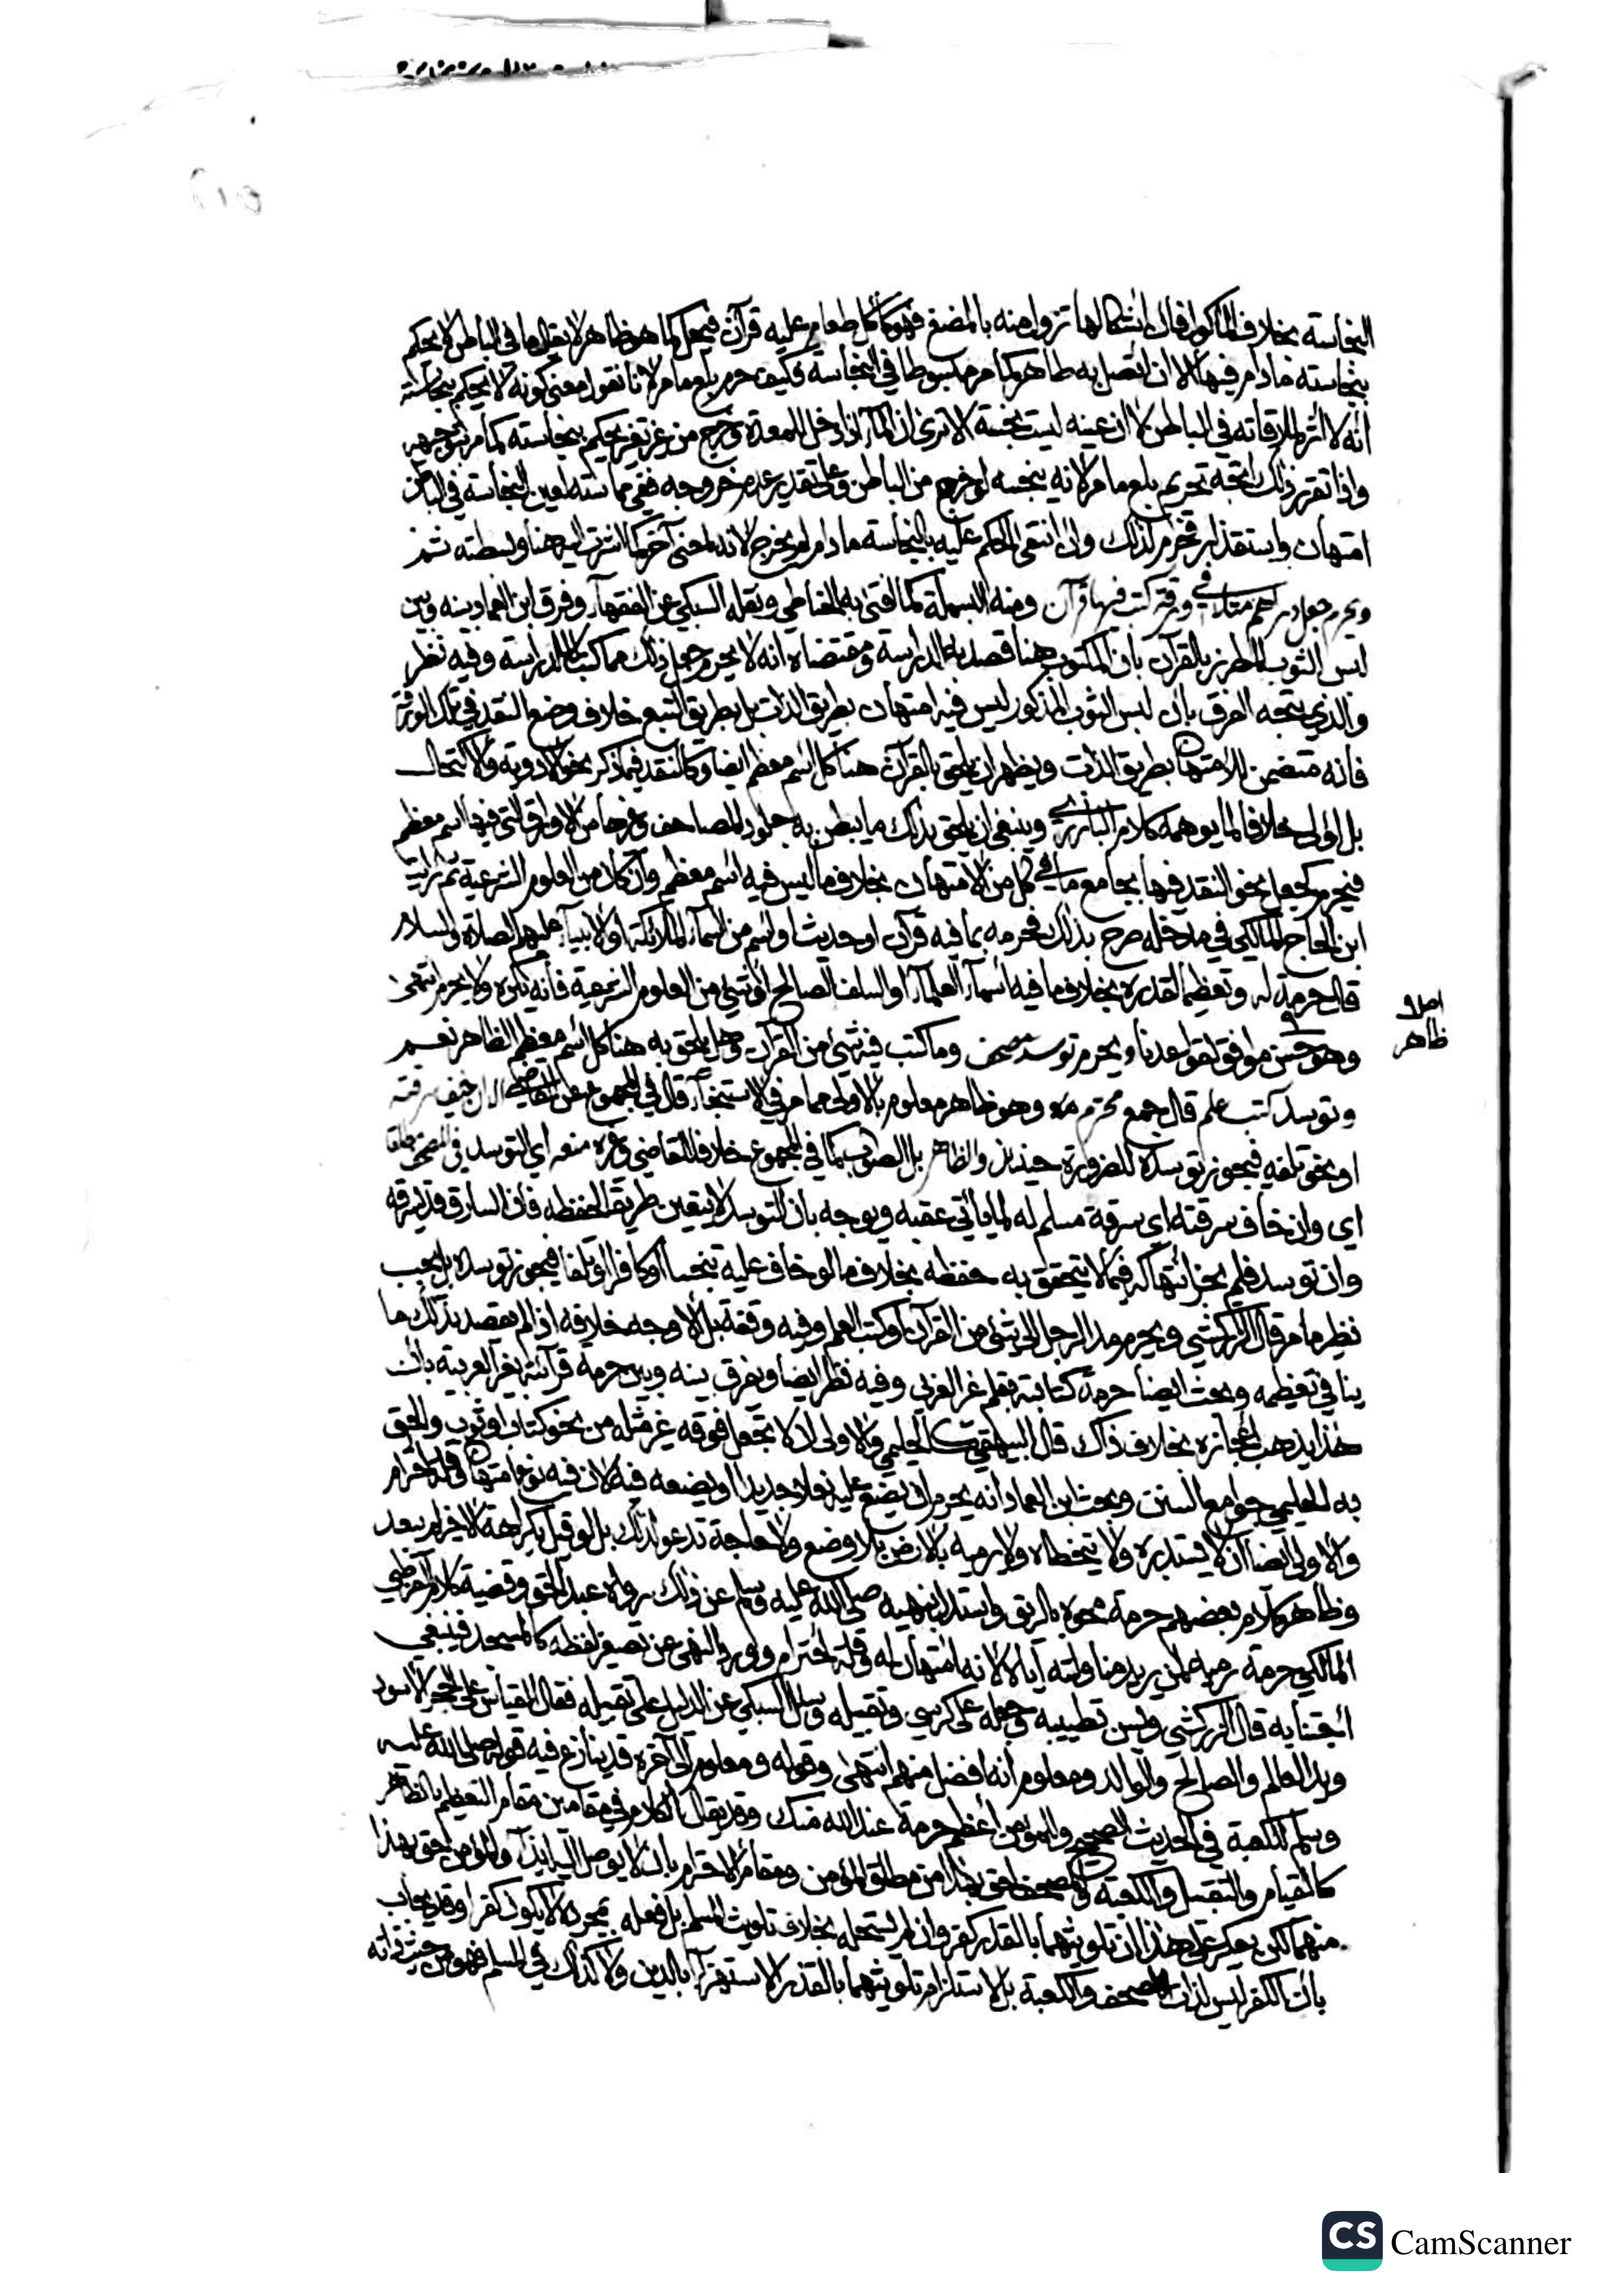 النجاسة بخلاف المأكول فان اشكالها تزول منه بالمضغ فهو كأكل طعام عليه قرآن فيحل كما هو ظاهر لا يقال ما في الباطن لا يحكم
بنجاسته ما دام فيها الا ان اتصل به طاهر كما مر مبسوطا في النجاسة فكيف حرم بلع ما مر لانا نقول معنى كونه لا يحكم بنجاسته
انه لا اثر لملاقاته في الباطن لا ان عينه ليست نجسة الا ترى ان الماء اذا دخل للمعدة وخرج من غير تغير يحكم بنجاسته كما مر توجيهه
واذا تقرر ذلك اتجه تحريم بلع ما مر لانه ينجسه لو خرج من الباطن وعلى تقدير عدم خروجه ففي مماسته لعين النجاسة في الباطن
امتهان واستقذار فحرم لذلك وان انتفى الحكم عليه بالنجاسة ما دام لم يخرج لانه لمعنى آخر كما اشرت اليه هنا وبسطته ثم
ويحرم جعل دراهم مثلا في ورقة كتب فيها قرآن ومنه البسملة كما افتى به الحناطي ونقله السبكي عن الفقهاء وفرق ابن العماد بينه وبين
لبس الثوب المطرز بالقرآن بان المكتوب هنا قصد به الدراسة ومقتضاه انه لا يحرم جعل ذلك مما كتب لا للدراسة وفيه نظر
والذي يتجه الفرق بان لبس الثوب المذكور ليس فيه امتهان بطريق الذات بل بطريق التبع خلاف وضع النقد في تلك الورقة
فانه متضمن للامتهان بطريق الذات ويظهر ان يلحق بالقرآن هنا كل اسم معظم ايضا وكالنقد فيما ذكر نحو الادوية والاكتحال
بل اولى خلافا لما يوهمه كلام البارزي وينبغي ان يلحق بذلك ما يبطن به جلود المصاحف وغيرها من الاوراق التي فيها اسم معظم
فيحرم كجعل نحو النقد فيها بجامع ما في كل من الامتهان بخلاف ما ليس فيه اسم معظم وان كان من العلوم الشرعية ثم رايت
ابن الحاج المالكي في مدخله صرح بذلك فحرمه بما فيه قرآن او حديث او اسم من اسماء الملائكة او الانبياء عليهم الصلاة والسلام
قال حرمة له وتعظيما لقدره بخلاف ما فيه اسماء العلماء او السلف الصالح او شئ من العلوم الشرعية فانه يكره ولا يحرم انتهى
وهو حسن موافق لقواعدنا ويحرم توسد مصحف وما كتب فيه شئ من القرآن وهل يلحق به هنا كل اسم معظم الظاهر نعم
وتوسد كتب علم قال جمع محترم وهو ظاهر معلوم بالاولى مما مر في الاستنجاء قال في المجموع عن القاضي الا ان خيف سرقته
او نحو تلفه فيجوز توسده للضرورة حينئذ والظاهر بل الصواب كما في المجموع خلافا للقاضي وغيره منعه اي التوسد في المصحف مطلقا
اي وان خاف سرقته اي سرقة مسلم له لما ياتي عقبه ويوجه بان التوسد لا يتعين طريقا لحفظه فان السارق قد يسرقه
وان توسد فلم يجز انتهاكه فيما لا يتحقق به حفظه بخلاف ما لو خاف عليه نجسا او كافرا او تلفا فيجوز توسده بل يجب
نظير ما مر قال الزركشي ويحرم مد الرجل الى شئ من القرآن او كتب العلم وفيه وقفة بل الاوجه خلافه اذا لم يقصد بذلك ما
ينافي تعظيمه وبحث ايضا حرمة كتابته بقلم غير العربي وفيه نظر ايضا ويفرق بينه وبين حرمة قرآءته بغير العربية بان
هذا يذهب اعجازه بخلاف ذاك قال البيهقي كالحليمي والاولى ان لا تجعل فوقه غير مثله من نحو كتاب او ثوب والحق
به الحليمي جوامع السنن وبحث ابن العماد انه يحرم ان يضع عليه نعلا جديدا او يضعه فيه لان فيه نوع امتهان وقلة احترام
والاولى ايضا ان لا يستدبره ولا يتخطاه ولا يرميه بالارض بلا وضع ولا حاجة تدعو لذلك بل لو قيل بكراهة الاخير لم يبعد
وظاهر كلام بعضهم حرمة محوه بالريق واستدل بنهيه صلى الله عليه وسلم عن ذلك رواه عبد الحق وقضية كلام القرطبي
المالكي حرمة رميه لمن يريد مناولته اياه لانه امتهان له وقلة احترام وورد النهي عن تصغير لفظه كالمسجد فينبغي
اجتنابه قال الزركشي ويسن تطييبه وجعله على كرسي وتقبيله وسئل السبكي عن الدليل على تقبيله فقال القياس على الحجر الاسود
ويد العالم والصالح والوالد ومعلوم انه افضل منهم انتهى وقوله ومعلوم الى آخره قد ينازع فيه قوله صلى الله عليه
وسلم للكعبة في الحديث الصحيح والمؤمن أعظم حرمة عند الله منك وقد يقال الكلام في مقامين مقام التعظيم بالظاهر
كالقيام والتقبيل والكعبة والمصحف احق بهذا من مطلق المؤمن ومقام الاحترام بان لا يوصل اليه ايذاء والمؤمن احق بهذا
منهما لكن يعكر على هذا ان تلويثهما بالقذر كفر وان لم يستحله بخلاف تلويث المسلم بل فعله بمجرده لا يكون كفرا وقد يجاب
بان الكفر ليس لذات المصحف والكعبة بل لاستلزام تلويثهما بالقذر الاستهزاء بالدين ولا كذلك في المسلم فهو من حيث ذاته
اصلا
ظاهر
CS CamScanner